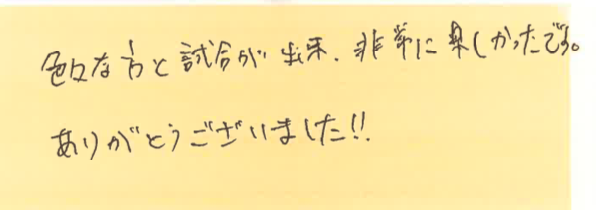 色々な方と試合が出来、非常に楽しかったです。
ありがとうございました!!